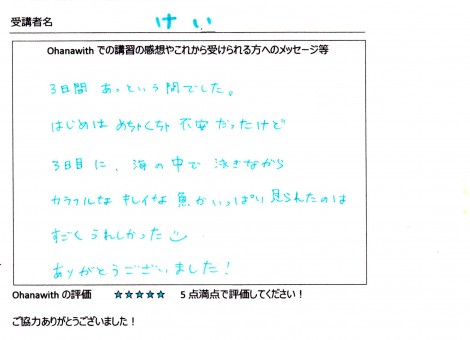 受講者名 けい
Ohanawith での講習の感想やこれから受けられる方へのメッセージ等
3日間 あっという間でした。
はじめは めちゃくちゃ 不安 だったけど
3日目に、海の中で 泳ぎながら
カラフルな キレイな 魚がいっぱい 見られたのは
すごく うれしかった
ありがとうございました!
Ohanawith の評価 ★★★★★ 5 点満点で評価してください!
ご協力ありがとうございました!